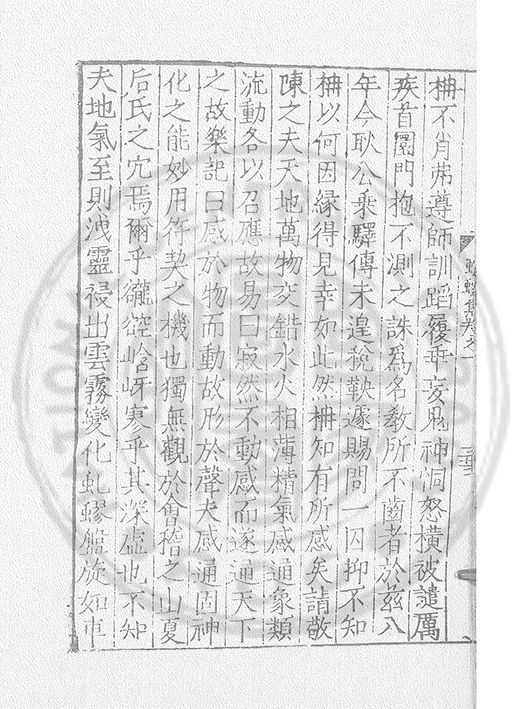 柟不肖弗遵師訓蹈履乖妄鬼神恫怒橫被譴厲
疾首圜門抱不測之誅爲名教所不齒者於茲八
年今耿公乘驛傳未遑稅鞅遽賜問一囚抑不知
柟以何因緣得見幸如此然柟知有所感矣請敬
陳之夫天地萬物交錯水火相薄精氣感通象類
流動各以召應故易曰寂然不動感而遂通天下
之故樂記曰感於物而動故形於聲夫感通固神
化之能妙用符契之機也獨無觀於會稽之山夏
后氏之穴焉爾乎巃嵸峆岈寥乎其深虛也不知
夫地氣至則洩靈祲出雲霧變化虬蟉盤旋如車
蠛蠓集卷之一